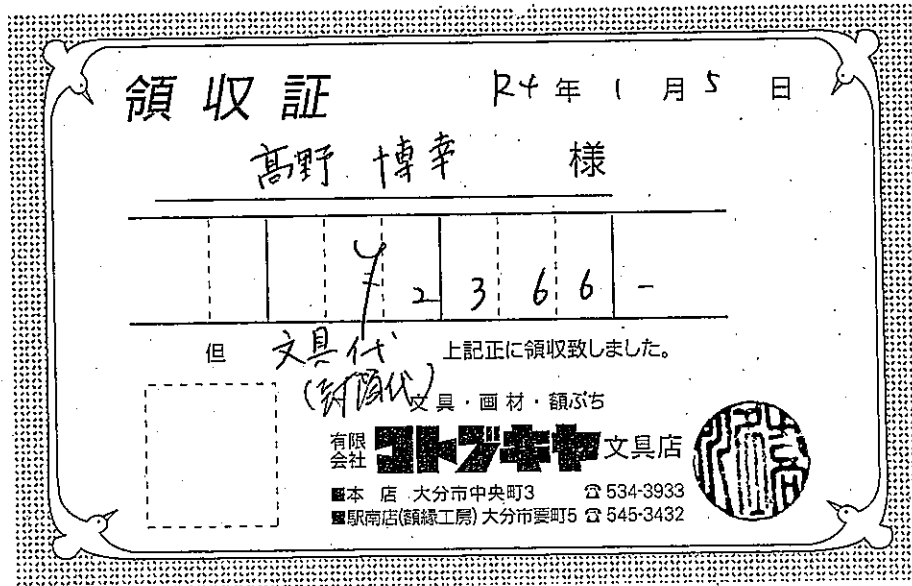 領収証 R4年 1月5日
髙野 博幸 様
¥2366-
但 文具代 上記正に領収致しました。
(封筒代)
文具・画材・額ぶち
有限会社 コトブキヤ 文具店
本店 大分市中央町3 ☎534-3933
駅南店(額縁工房) 大分市要町5 ☎545-3432